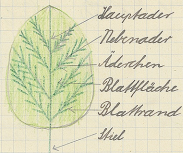 Hauptader
Nebenader
Äderchen
Blattfläche
Blattrand
Stiel